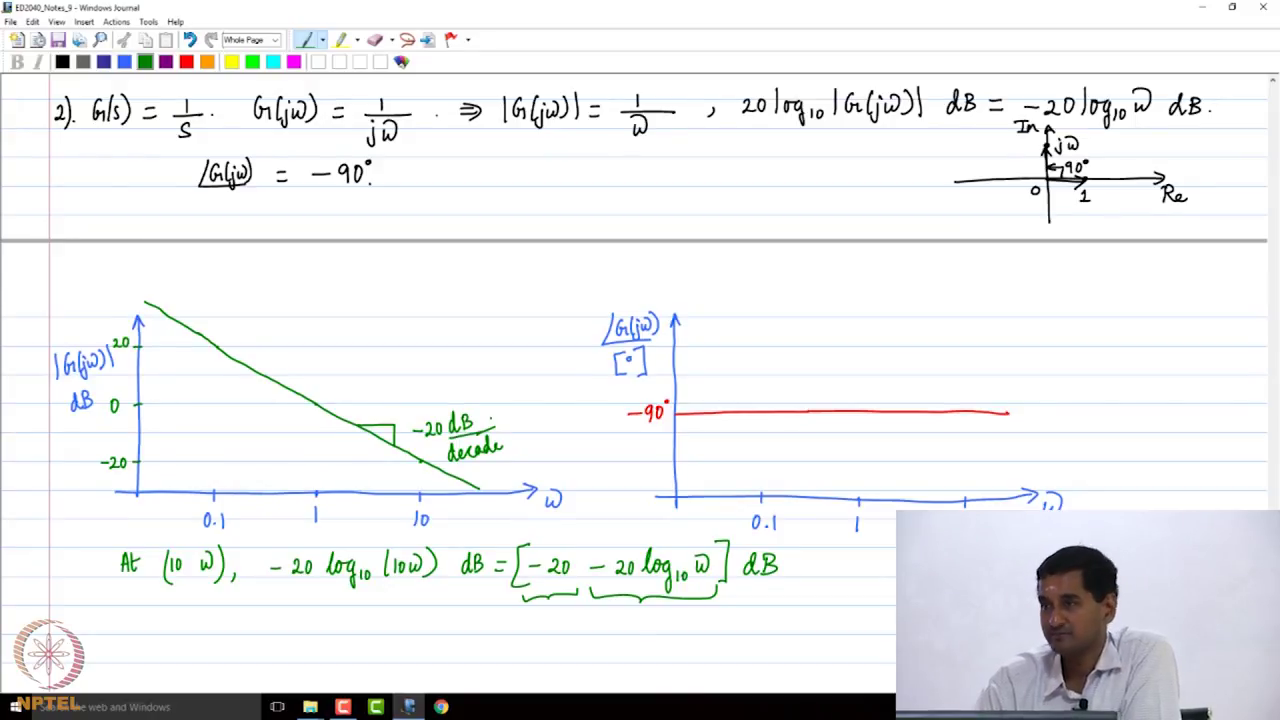 ED2040_Notes_9 - Windows Journal
File Edit View Insert Actions Tools Help
Whole Page
B I
2). G(s) = 1/s. G(jω) = 1/jω. ⇒ |G(jω)| = 1/ω , 20 log10 |G(jω)| dB = -20 log10 ω dB.
∠G(jω) = -90°.
Im
jω
90°
0 1 Re
|G(jω)| dB
20
0
-20
-20 dB/decade
0.1 1 10 ω
∠G(jω) [°]
-90°
0.1 1 ω
At (10 ω), -20 log10 (10ω) dB = [-20 -20 log10 ω] dB
NPTEL
Search the web and Windows